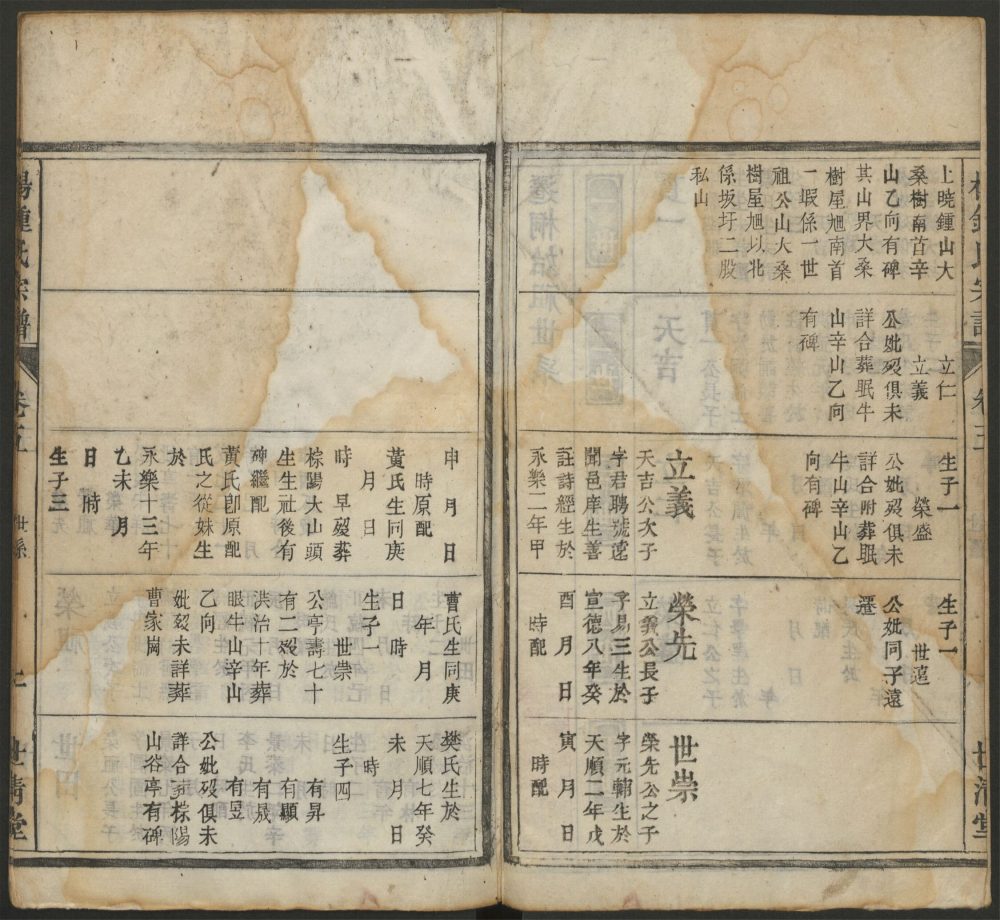 上曉鍾山大
桑樹南首辛
山乙向有碑
其山界大桑
樹屋旭南首
一嘏係一世
祖公山大桑
樹屋旭以北
係坂圩二股
私山
立仁
立義
公妣歿俱未
詳合葬眠牛
山辛山乙向
有碑
生子一
榮盛
公妣歿俱未
詳合附葬眠
牛山辛山乙
向有碑
立義
天吉公次子
字君聘號遠
聞邑庠生善
註詩經生於
永樂二年甲
生子一
世遠
公妣同子遠
遷
榮先
立義公長子
字易三生於
宣德八年癸
酉 月 日
時配
世崇
榮先公之子
字元輔生於
天順二年戊
寅 月 日
時配
世清堂
申 月 日
時原配
黃氏生同庚
月 日
時 早歿葬
棕陽大山頭
生生社後有
碑繼配
黃氏卽原配
氏之從妹生
於
永樂十三年
乙未 月
日 時
生子三
曹氏生同庚
年 月
日 時
生子一
世崇
公享壽七十
有二歿於
洪治 年葬
眼牛山辛山
乙向
妣歿未詳葬
曹家崗
樊氏生於
天順七年癸
未 月 日
時
生子四
有昇
有顯
有晟
有昱
公妣歿俱未
詳合葬棕陽
山谷亭有碑
鍾氏宗譜
卷五
世系
世清堂